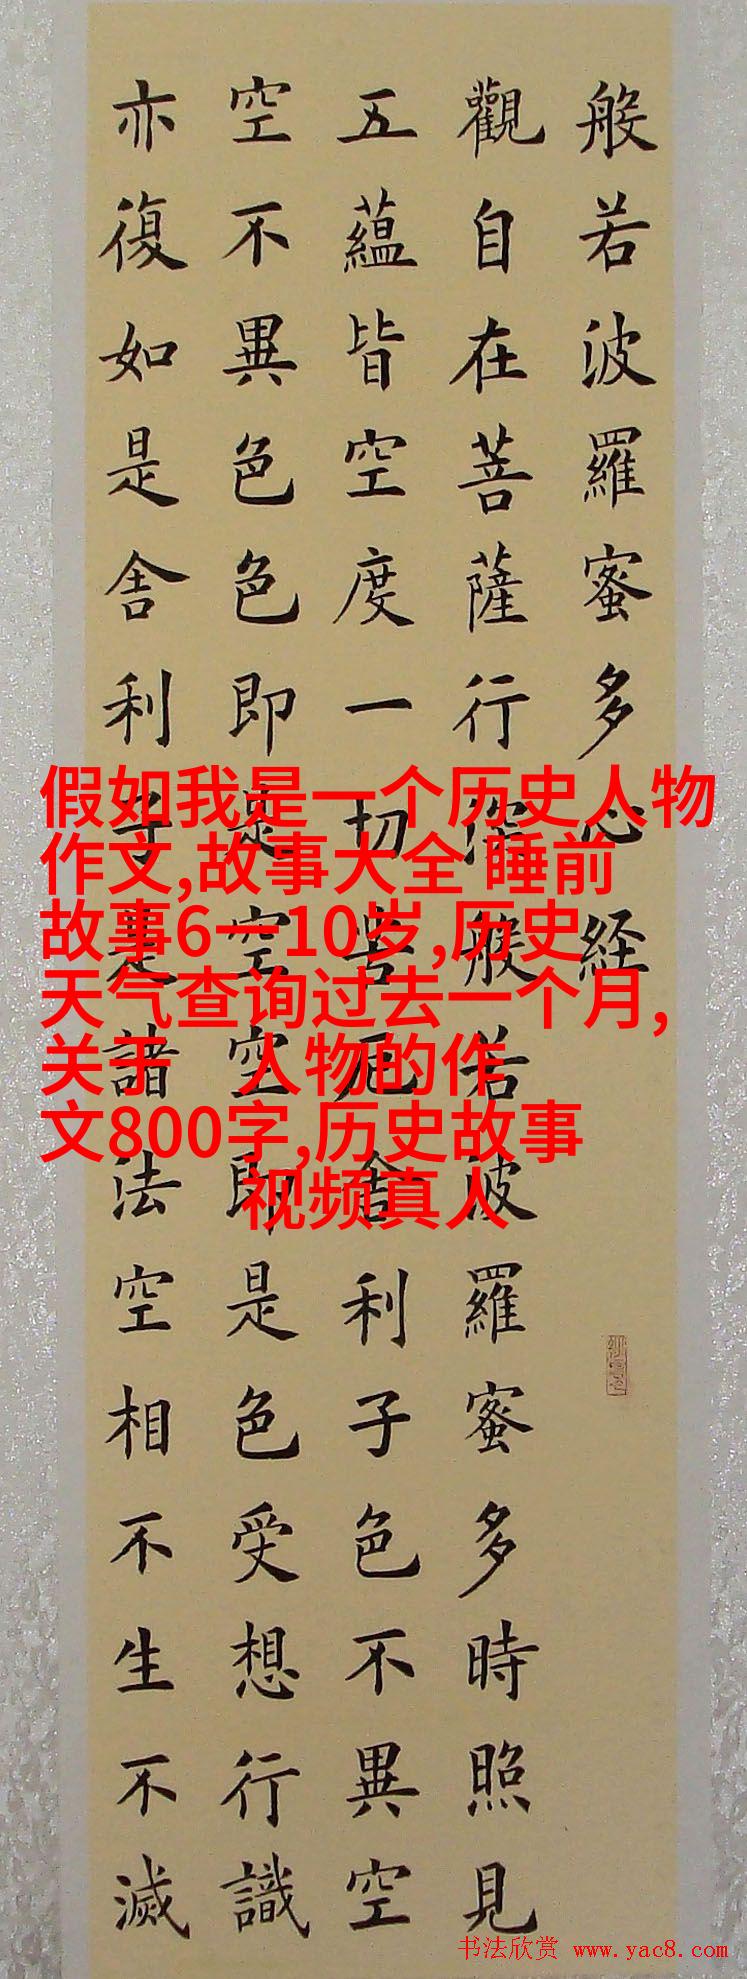 般若波羅蜜多心経
觀自在菩薩行深般若波羅蜜多時照見
五蘊皆空度一切苦厄舍利子色不異空
空不異色色即是空空即是色受想行識
亦復如是舍利子是諸法空相不生不滅
假如我是一个历史人物
作文,故事大全 睡前
故事6一10岁,历史
天气查询过去一个月,
关于　人物的作
文800字,历史故事
视频真人
书法欣赏 www.yac8.com